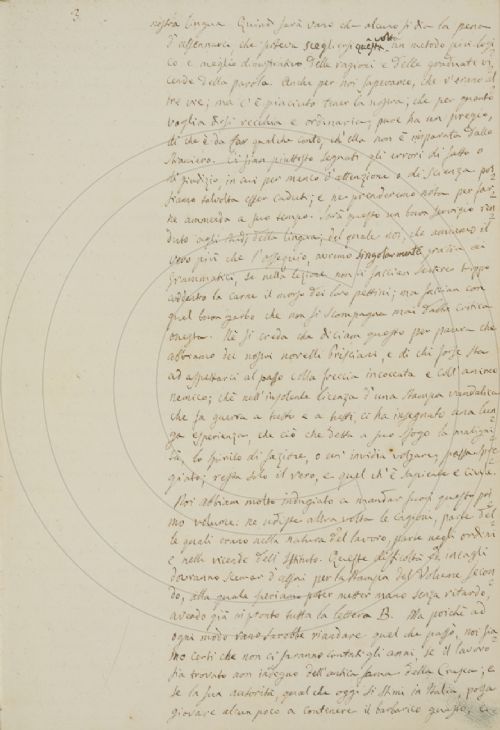 3.
nostra lingua. Quindi sarà vano che alcuno si dia la pena
d'affannarsi che poteva scegliersi questa volta un metodo più logi-
co e meglio dimostrativo delle ragioni e delle graduate vi-
cende della parola. Anche per noi sapevamo, che v'erano al-
tre vie; ma c'è piaciuto tener la nostra; che per quanto
voglia dirsi vecchia e ordinaria; pure ha un pregio,
di che è da far qualche conto, ch'ella non è imparata dallo
straniero. Ci sian piuttosto segnati gli errori di fatto o
di giudizio, in cui per manco d'attenzione o di scienza pos-
siamo talvolta esser caduti; e ne prenderemo nota per far-
ne ammenda a suo tempo. Sarà questo un buon servigio ren-
duto agli studj della lingua; del quale noi, che amiamo il
vero più che l'ossequio, avremo singolarmente grazia ai
Grammatici, se nella lezione non ci faccian sentire troppo
addentro la carne il morso dei loro pettini; ma faccian con
quel buon garbo che non si scompagna mai dalla critica
onesta. Nè si creda che diciam questo per paura che
abbiamo dei nostri novelli Prisciani, e di chi forse sta
ad aspettarci al passo colla freccia incoccata e coll'animo
nemico; chè nell'insolente licenza d'una stampa vandalica
che fa guerra a tutto e a tutti, ci ha insegnato una lun-
ga esperienza, che ciò che detta a suo sfogo la maligni-
tà, lo spirito di fazione, o un'invidia volgare, passa spre-
giato; resta solo il vero, e quel ch'è sapiente e civile.
Noi abbiam molto indugiato a mandar fuori questo pri-
mo volume. ne udiste altra volta le cagioni, parte del-
le quali erano nella natura del lavoro, parte negli ordini
e nelle vicende dell'Istituto. Queste difficoltà ed incagli
dovranno scemar d'assai per la stampa del Volume secon-
do, alla quale speriamo poter metter mano senza ritardo,
avendo già in pronto tutta la lettera B. Ma poichè ad
ogni modo vano sarebbe riandare quel che passò, noi sia-
mo certi che non ci saranno contati gli anni, se il lavoro
sia trovato non indegno dell'antica fama della Crusca; e
se la sua autorità, qual che oggi si stimi in Italia, possa
giovare alcun poco a contenere il barbarico guasto, e